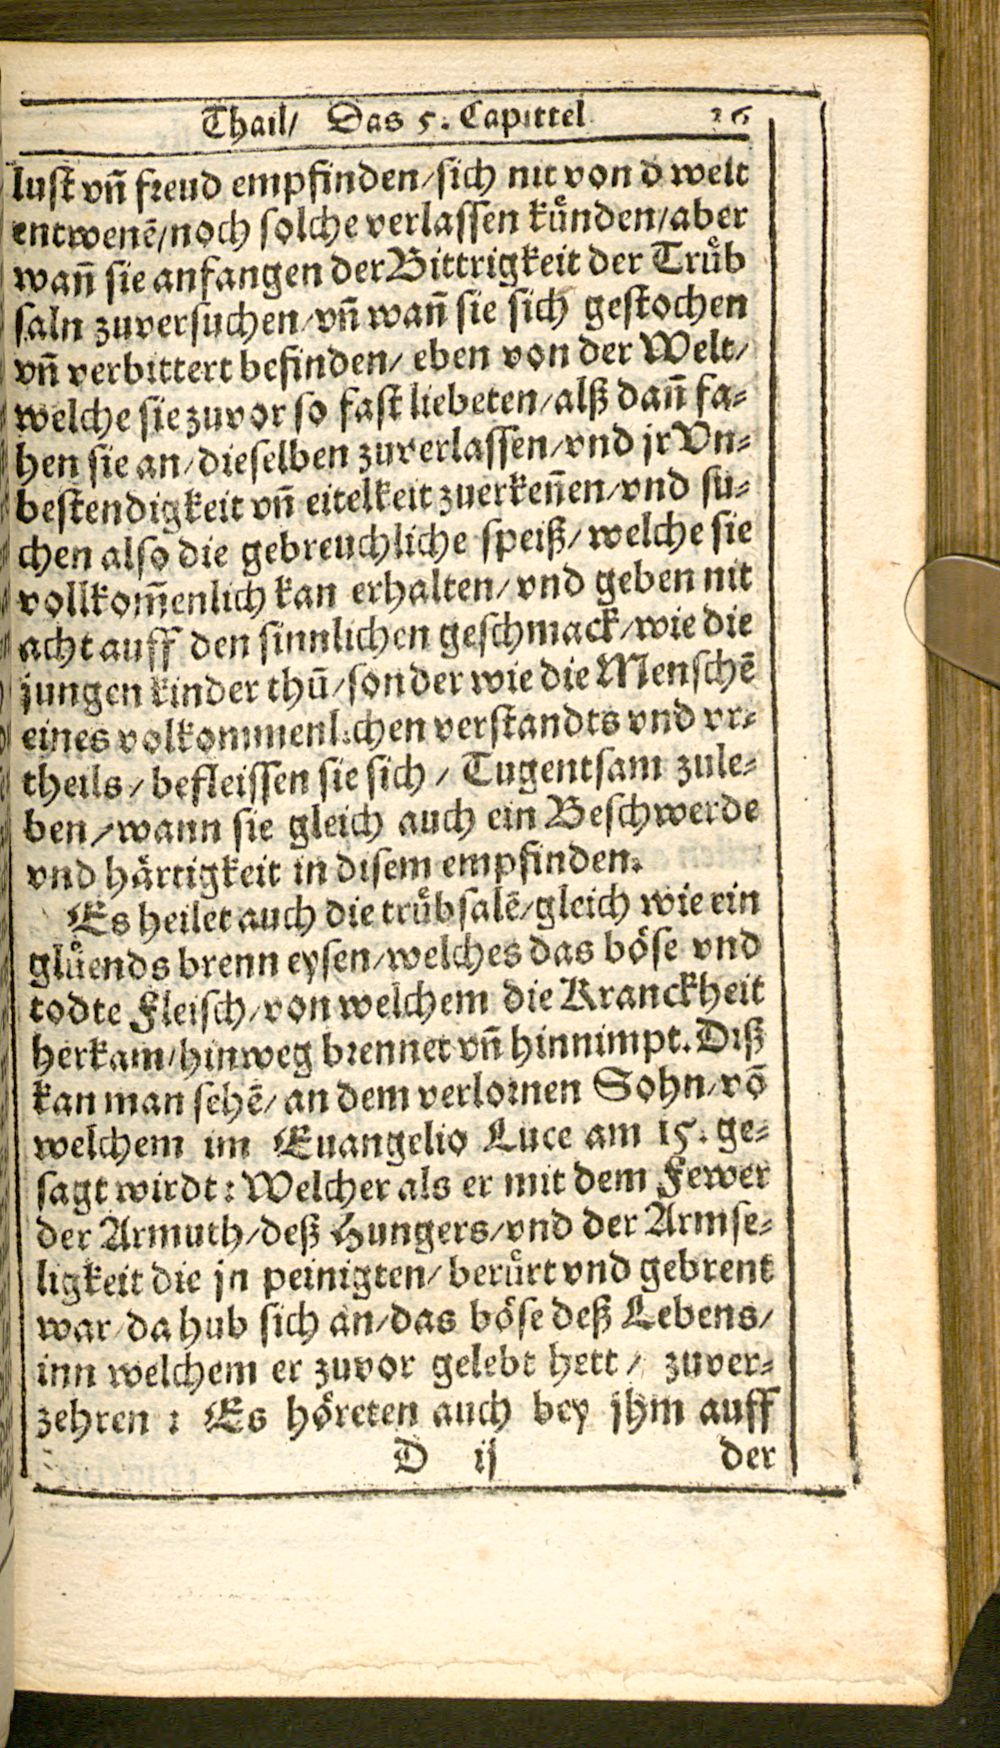 Thail/ Das 5. Capittel 26
lust vn̄ freud empfinden/sich nit von d welt
entwenē/noch solche verlassen kuͤnden/aber
wañ sie anfangen der Bittrigkeit der Truͤb
saln zuversuchen/vn̄ wañ sie sich gestochen
vn̄ verbittert befinden/ eben von der Welt/
welche sie zuvor so fast liebeten/alß dañ fa⸗
hen sie an/dieselben zuverlassen/vnd jr Vn⸗
bestendigkeit vn̄ eitelkeit zuerkeñen/vnd su⸗
chen also die gebreuchliche speiß/welche sie
vollkom̄enlich kan erhalten/vnd geben nit
acht auff den sinnlichen geschmack/wie die
jungen kinder thū/sonder wie die Menschē
eines volkommenlichen verstandts vnd vr⸗
theils/befleissen sie sich/Tugentsam zule⸗
ben/wann sie gleich auch ein Beschwerde
vnd haͤrtigkeit in disem empfinden.
Es heilet auch die truͤbsalē/gleich wie ein
gluͤends brenn eysen/welches das boͤse vnd
todte Fleisch/von welchem die Kranckheit
herkam/hinweg brennet vn̄ hinnimpt. Diß
kan man sehē/an dem verlornen Sohn/vō
welchem im Euangelio Luce am 15. ge⸗
sagt wirdt: Welcher als er mit dem Fewer
der Armuth/deß Hungers/vnd der Armse⸗
ligkeit die jn peinigten/beruͤrt vnd gebrent
war/da hub sich an/das boͤse deß Lebens/
inn welchem er zuvor gelebt hett/ zuver⸗
zehren: Es hoͤreten auch bey jhm auff
D ij der